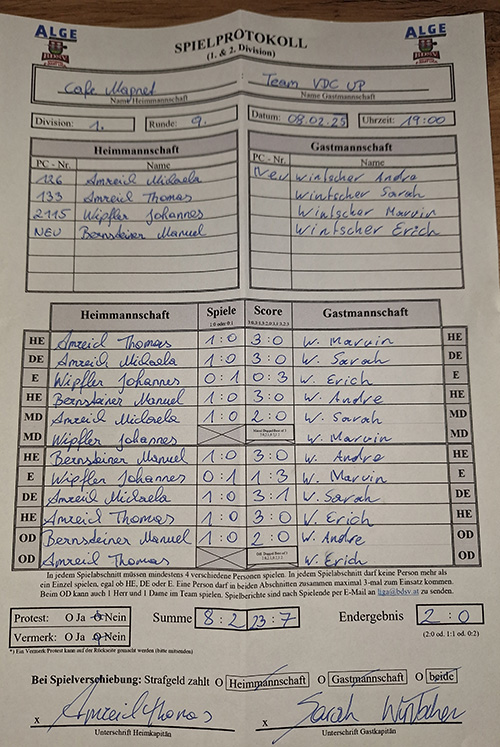 ALGE ALGE
BDSV BDSV
SPIELPROTOKOLL
(1. & 2. Division)
Cafe Magnet Team VDC UP
Name Heimmannschaft Name Gastmannschaft
Division: 1. Runde: 9. Datum: 08.02.25 Uhrzeit: 19:00
Heimmannschaft Gastmannschaft
PC - Nr. Name PC - Nr. Name
126 Amreich Michaela Neu Wintscher Andre
133 Amreich Thomas Wintscher Sarah
2115 Wipfler Johannes Wintscher Marvin
NEU Bernsteiner Manuel Wintscher Erich
Heimmannschaft Spiele Score Gastmannschaft
1:0 oder 0:1
HE Amreich Thomas 1:0 3:0 W. Marvin HE
DE Amreich Michaela 1:0 3:0 W. Sarah DE
E Wipfler Johannes 0:1 0:3 W. Erich E
HE Bernsteiner Manuel 1:0 3:0 W. Andre HE
MD Amreich Michaela 1:0 2:0 W. Sarah MD
MD Wipfler Johannes W. Marvin MD
HE Bernsteiner Manuel 1:0 3:0 W. Andre HE
E Wipfler Johannes 0:1 1:3 W. Marvin E
DE Amreich Michaela 1:0 3:1 W. Sarah DE
HE Amreich Thomas 1:0 3:0 W. Erich HE
OD Bernsteiner Manuel 1:0 2:0 W. Andre OD
OD Amreich Thomas W. Erich OD
In jedem Spielabschnitt müssen mindestens 4 verschiedene Personen spielen. In jedem Spielabschnitt darf keine Person mehr als
ein Einzel spielen, egal ob HE, DE oder E. Eine Person darf in beiden Abschnitten zusammen maximal 3-mal zum Einsatz kommen.
Beim OD kann auch 1 Herr und 1 Dame im Team spielen. Spielberichte sind nach Spielende per E-Mail an liga@bdsv.at zu senden.
Protest: O Ja O Nein Summe 8:2 23:7 Endergebnis 2:0
Vermerk: O Ja O Nein (2:0 od. 1:1 od. 0:2)
*) Ein Vermerk/Protest kann auf der Rückseite gemacht werden (bitte mitsenden)
Bei Spielverschiebung: Strafgeld zahlt O Heimmannschaft O Gastmannschaft O beide
x Amreich Thomas x Sarah Wintscher
Unterschrift Heimkapitän Unterschrift Gastkapitän